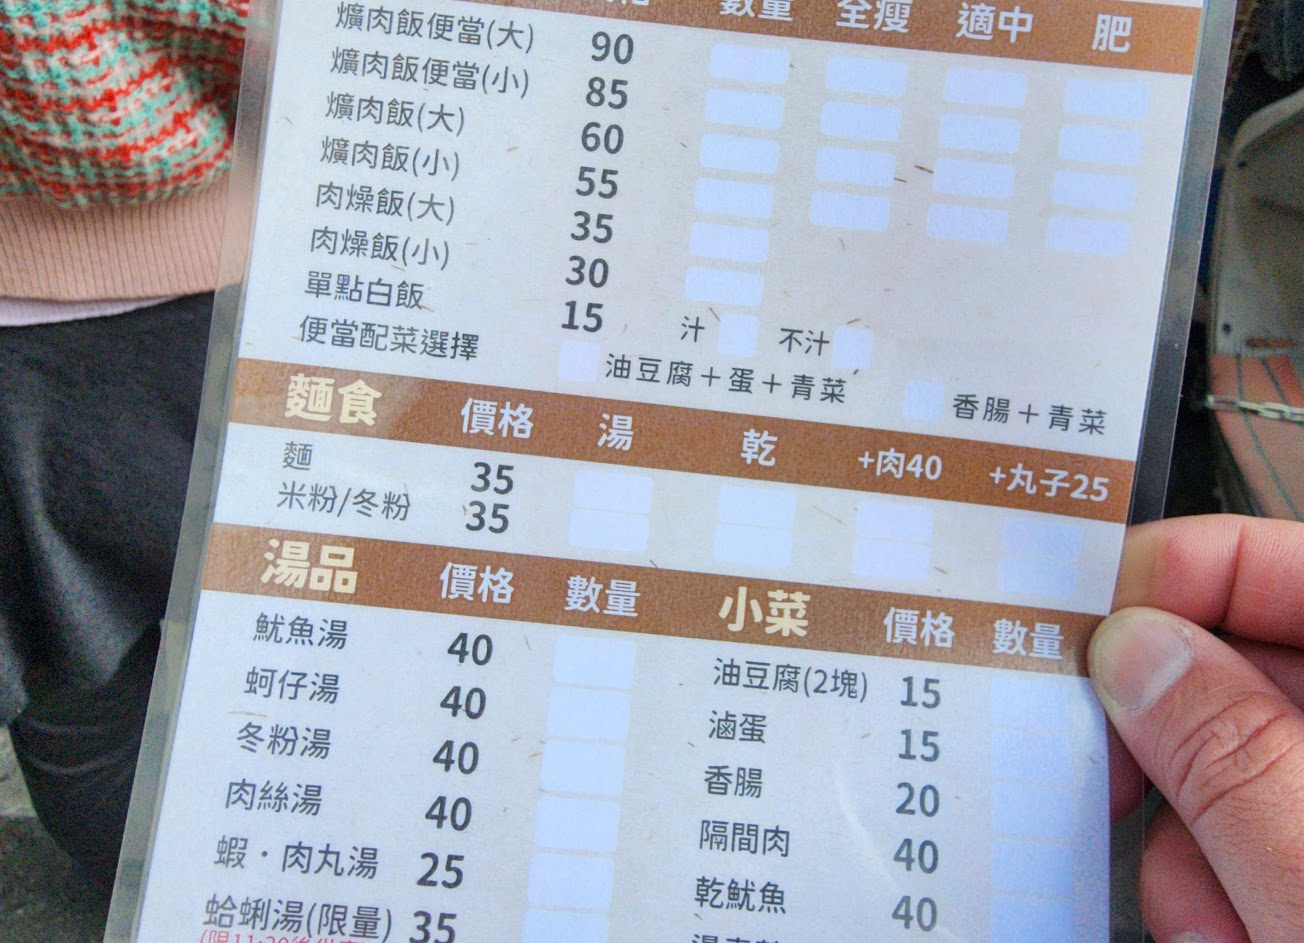 數量 全瘦 適中 肥
爌肉飯便當(大) 90
爌肉飯便當(小) 85
爌肉飯(大) 60
爌肉飯(小) 55
肉燥飯(大) 35
肉燥飯(小) 30
單點白飯 15 汁 不汁
便當配菜選擇 油豆腐+蛋+青菜 香腸+青菜
麵食 價格 湯 乾 +肉40 +丸子25
麵 35
米粉/冬粉 35
湯品 價格 數量 小菜 價格 數量
魷魚湯 40 油豆腐(2塊) 15
蚵仔湯 40 滷蛋 15
冬粉湯 40 香腸 20
肉絲湯 40 隔間肉 40
蝦·肉丸湯 25 乾魷魚 40
蛤蜊湯(限量) 35